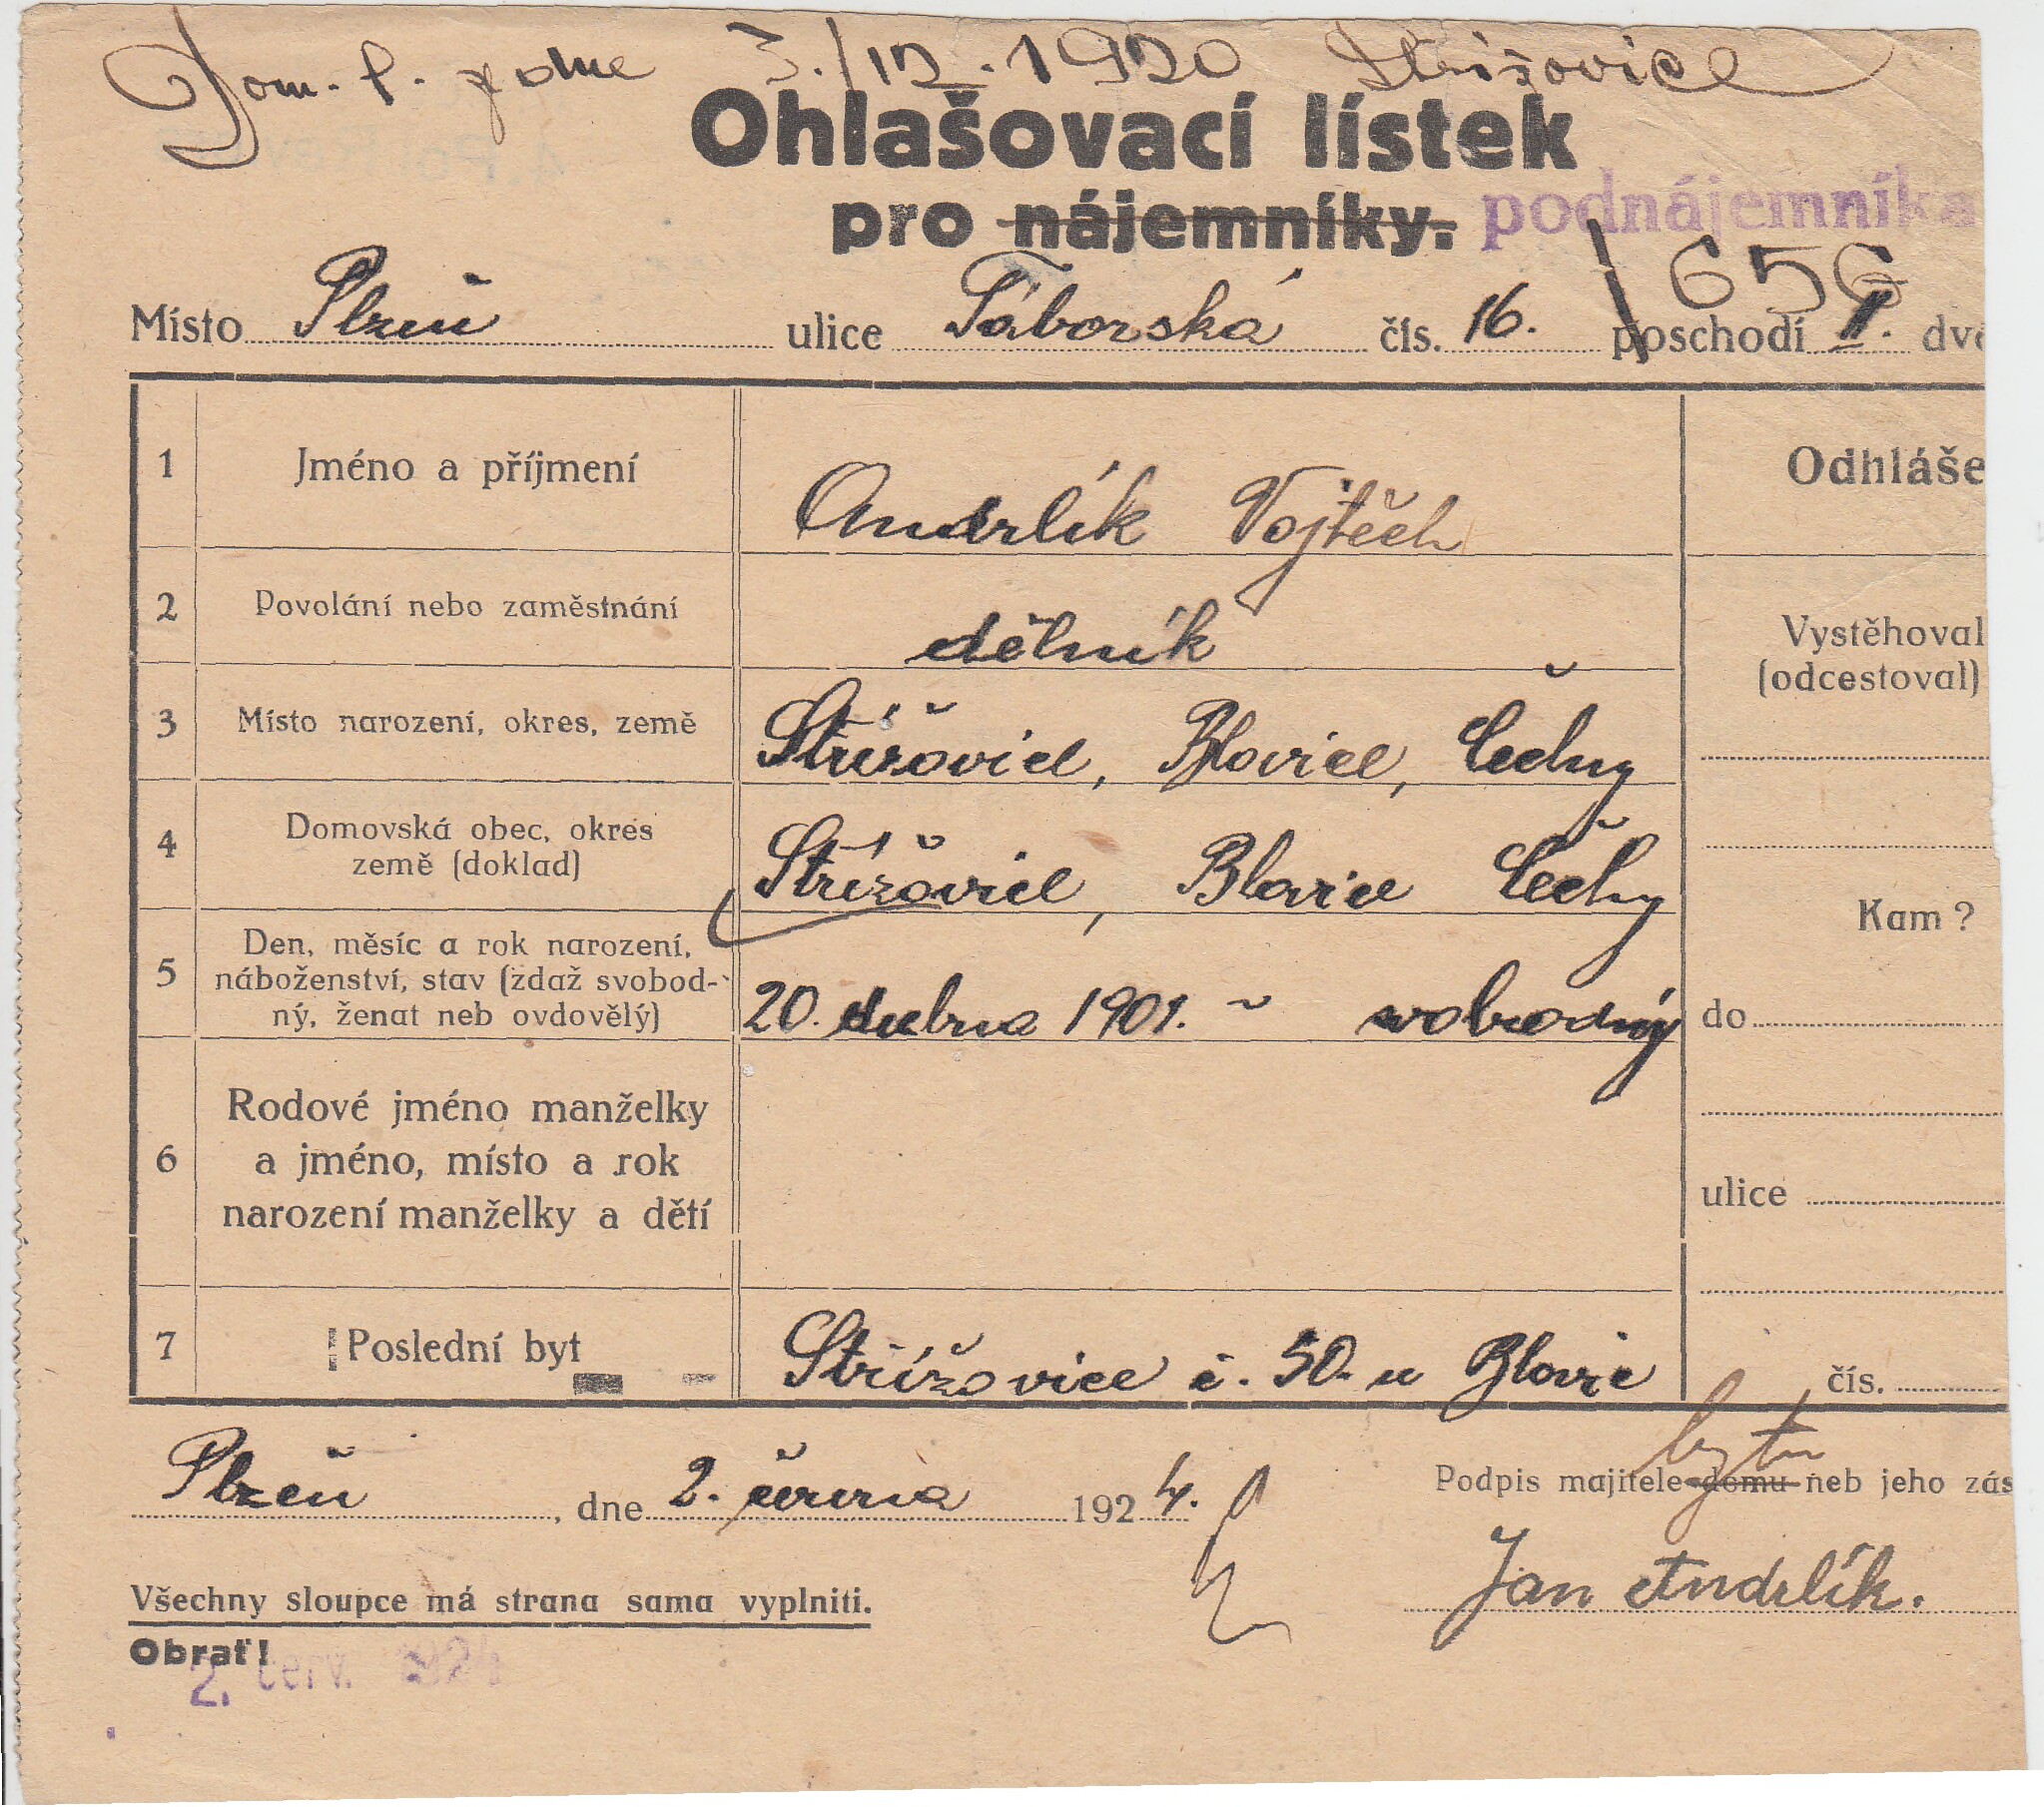 Dom. l. z dne 3./12. 1920 Střížovice
Ohlašovací lístek
pro nájemníky. podnájemníka
1656
Místo Plzeň ulice Táborská čís. 16. poschodí II. dvo
1 Jméno a příjmení Andrlík Vojtěch Odhláše
2 Povolání nebo zaměstnání dělník Vystěhoval
(odcestoval)
3 Místo narození, okres, země Střížovice, Blovice, Čechy
4 Domovská obec, okres
země (doklad) Střížovice, Blovice Čechy
Kam?
5 Den, měsíc a rok narození,
náboženství, stav (zdaž svobod-
ný, ženat neb ovdovělý) 20. dubna 1901. ~ svobodný do
6 Rodové jméno manželky
a jméno, místo a rok
narození manželky a dětí
ulice
7 Poslední byt Střížovice č. 50. u Blovic čís.
bytu
Plzeň, dne 2. června 1924. Podpis majitele domu neb jeho zás
Jan Andrlík.
Všechny sloupce má strana sama vyplniti.
Obrať!
2. červ. 1924